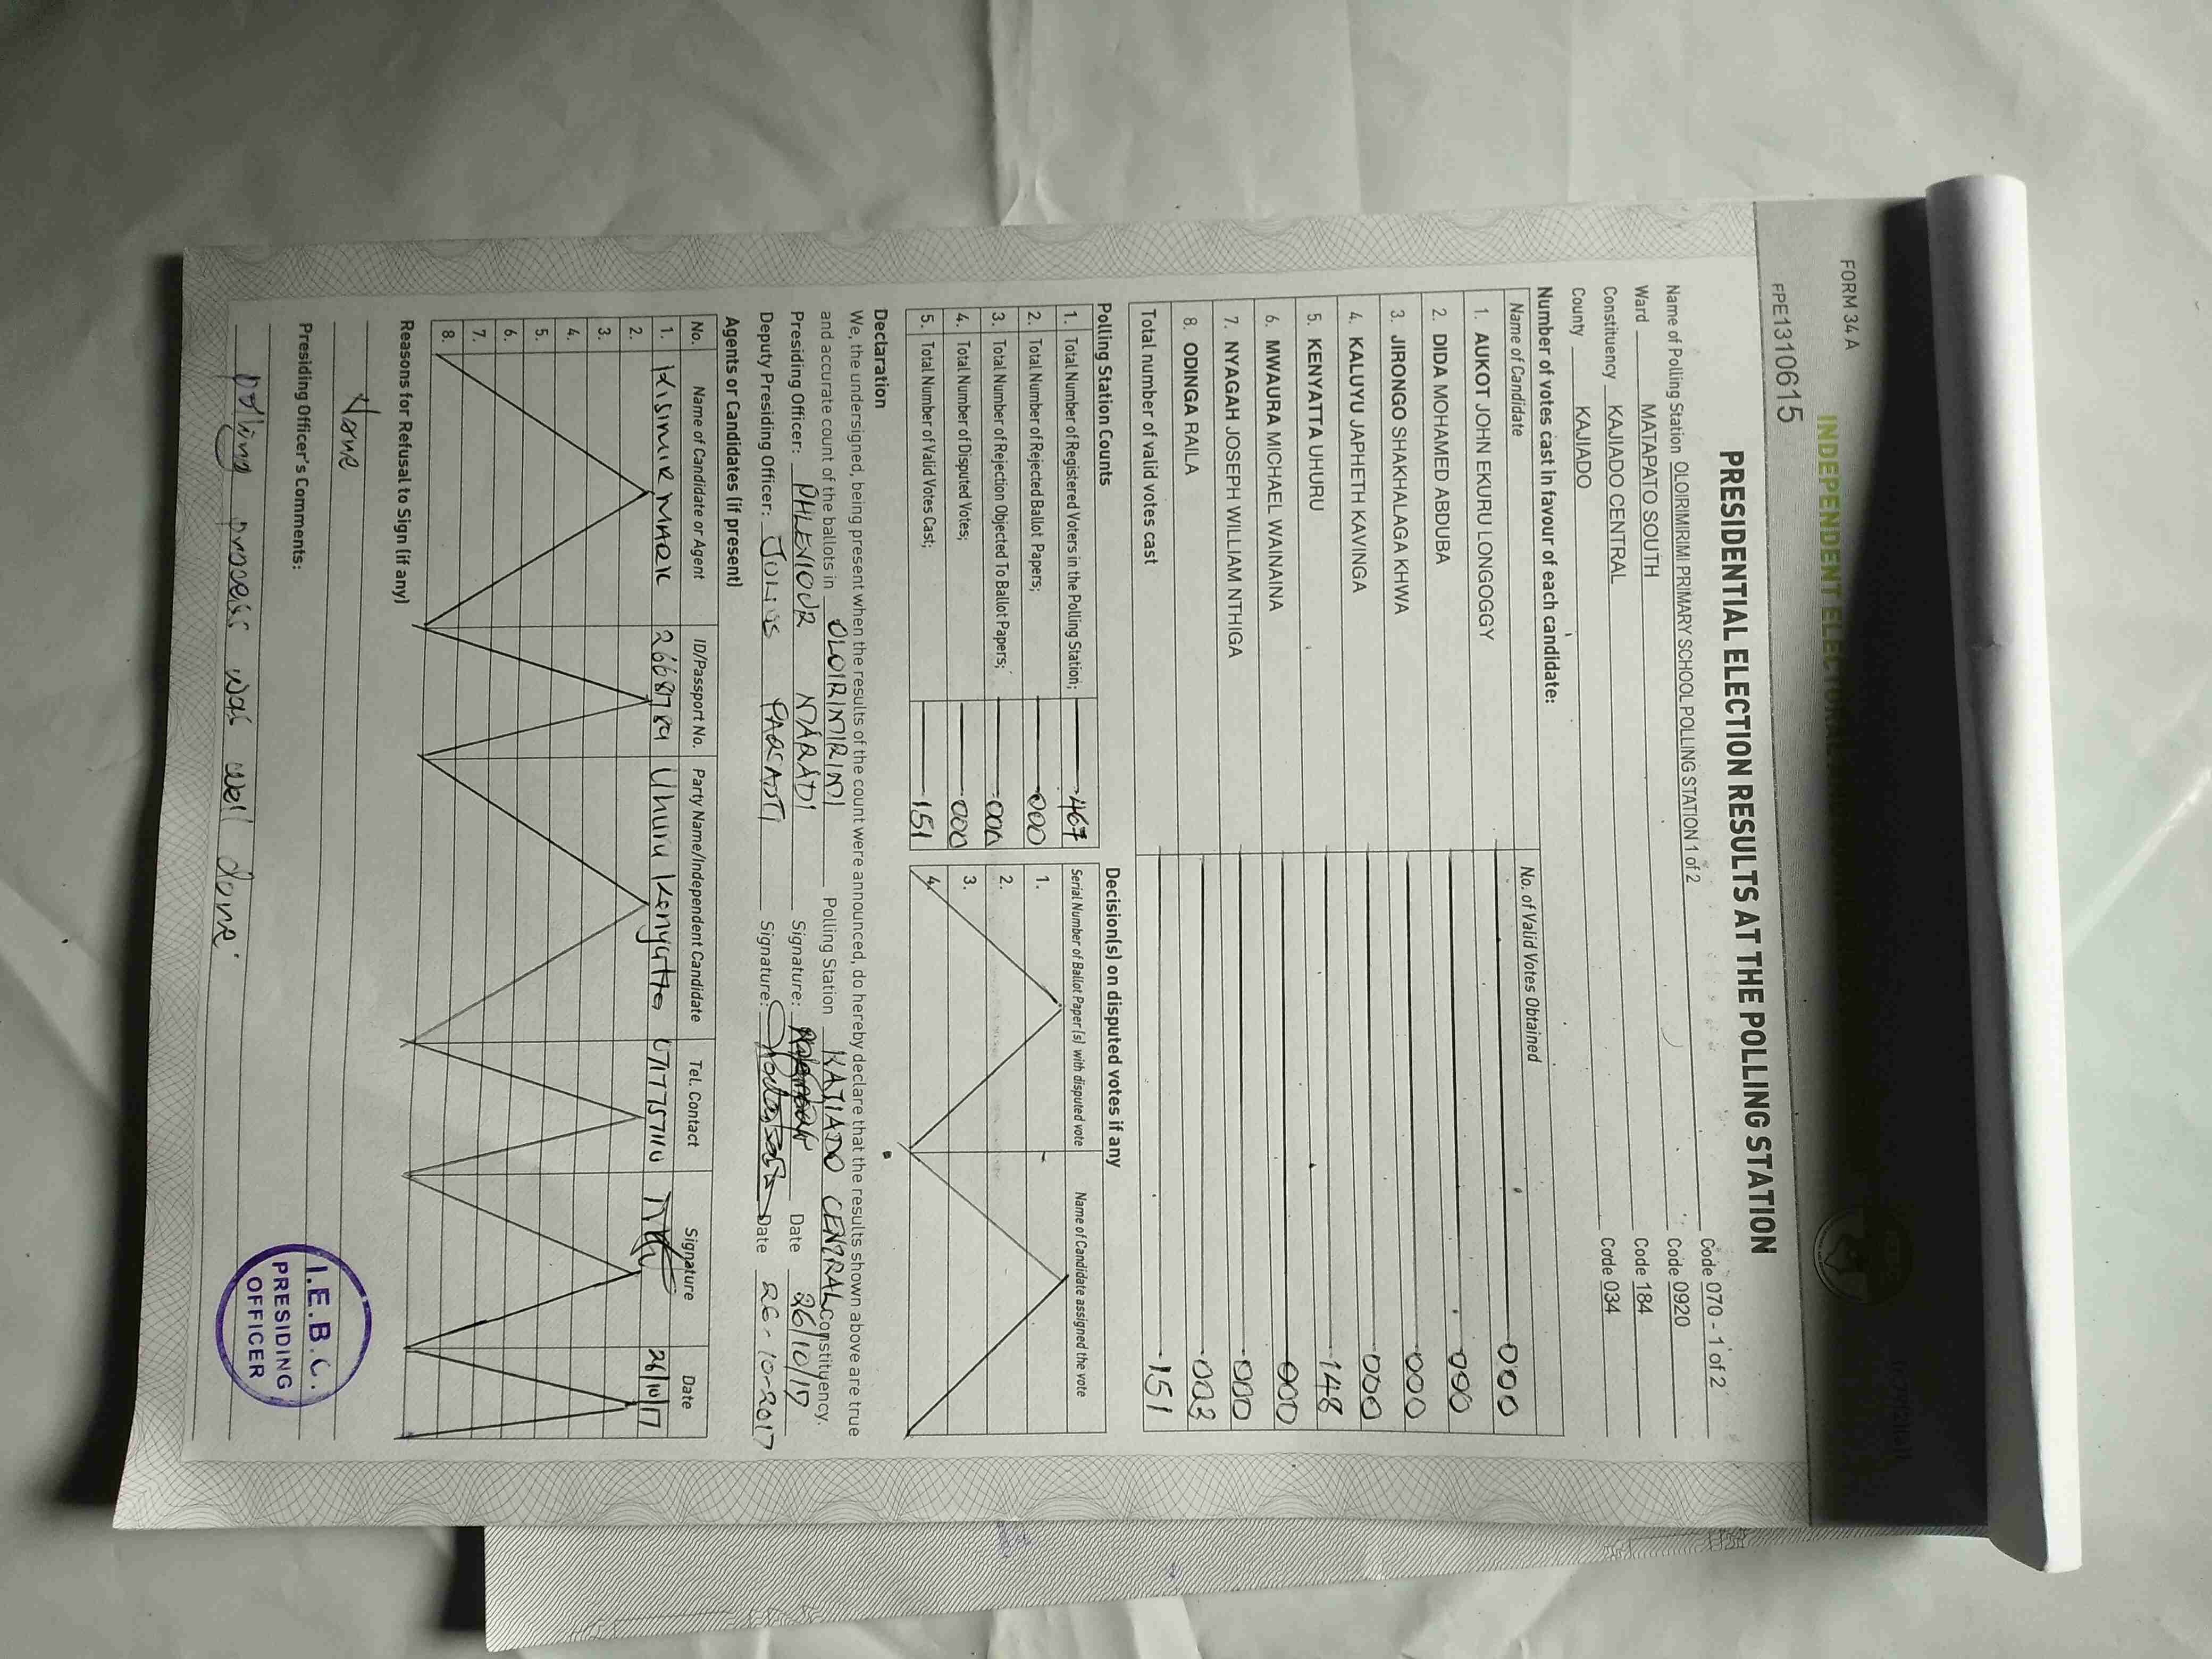 FORM 34 A
INDEPENDENT ELECTORAL
FPE1310615
PRESIDENTIAL ELECTION RESULTS AT THE POLLING STATION
Name of Polling Station OLOIRIMIRIMI PRIMARY SCHOOL POLLING STATION 1 of 2 Code 070 - 1 of 2
Ward MATAPATO SOUTH Code 0920
Constituency KAJIADO CENTRAL Code 184
County KAJIADO Code 034
Number of votes cast in favour of each candidate:
Name of Candidate No. of Valid Votes Obtained
1. AUKOT JOHN EKURU LONGOGGY 000
2. DIDA MOHAMED ABDUBA 000
3. JIRONGO SHAKHALAGA KHWA 000
4. KALUYU JAPHETH KAVINGA 000
5. KENYATTA UHURU 148
6. MWAURA MICHAEL WAINAINA 000
7. NYAGAH JOSEPH WILLIAM NTHIGA 000
8. ODINGA RAILA 003
Total number of valid votes cast 151
Polling Station Counts
1. Total Number of Registered Voters in the Polling Station; 467
2. Total Number of Rejected Ballot Papers; 000
3. Total Number of Rejection Objected To Ballot Papers; 000
4. Total Number of Disputed Votes; 000
5. Total Number of Valid Votes Cast; 151
Decision(s) on disputed votes if any
Serial Number of Ballot Paper(s) with disputed vote Name of Candidate assigned the vote
1.
2.
3.
4.
Declaration
We, the undersigned, being present when the results of the count were announced, do hereby declare that the results shown above are true
and accurate count of the ballots in OLOIRIMIRIMI Polling Station KAJIADO CENTRAL Constituency.
Presiding Officer: PHLEVIOUR MARADI Signature: Date 26/10/17
Deputy Presiding Officer: JULIUS Signature: Date 26-10-2017
Agents or Candidates (if present)
No. Name of Candidate or Agent ID/Passport No. Party Name/Independent Candidate Tel. Contact Signature Date
1. KISIMIR MARK Uhuru Kenyatta 26/10/17
2.
3.
4.
5.
6.
7.
8.
Reasons for Refusal to Sign (if any)
None
Presiding Officer's Comments:
Polling process was well done.
I.E.B.C.
PRESIDING
OFFICER